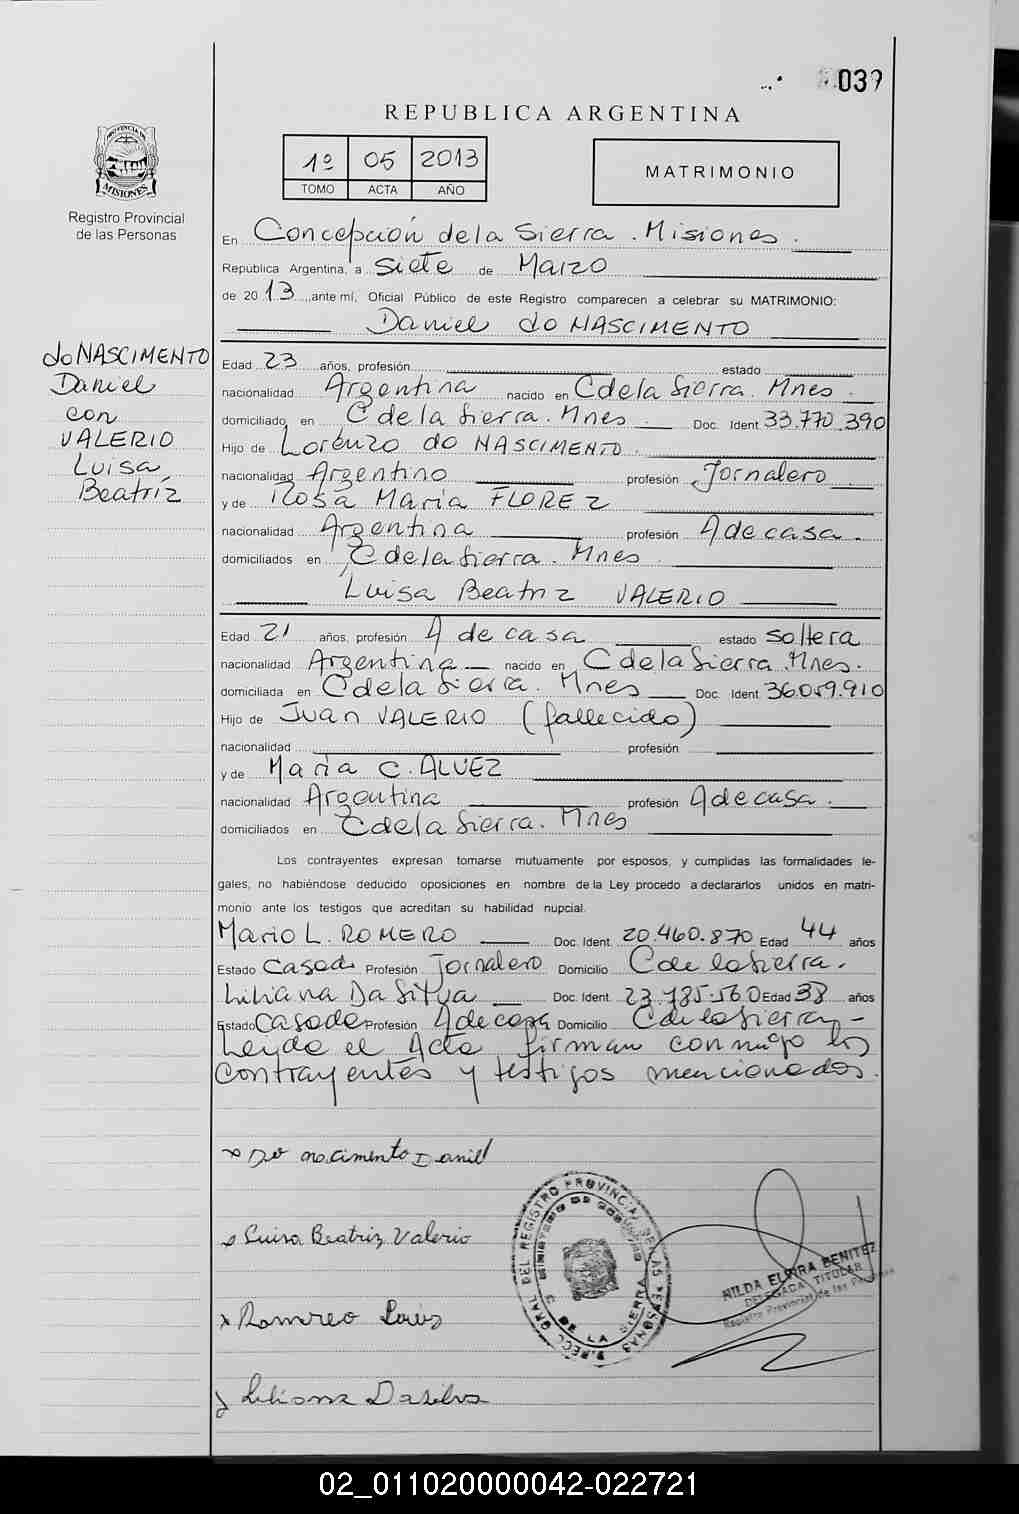 039
REPUBLICA ARGENTINA
1º 05 2013
TOMO ACTA AÑO
MATRIMONIO
PROVINCIA DE
MISIONES
Registro Provincial
de las Personas
En Concepción de la Sierra. Misiones.
República Argentina, a siete de Marzo
de 2013, ante mí, Oficial Público de este Registro comparecen a celebrar su MATRIMONIO:
Daniel do NASCIMENTO
do NASCIMENTO
Daniel
con
VALERIO
Luisa
Beatríz
Edad 23 años, profesión estado
nacionalidad Argentina nacido en C de la Sierra. Mnes.
domiciliado en C de la Sierra. Mnes. Doc. Ident. 33.770.390
Hijo de Lorenzo do NASCIMENTO.
nacionalidad Argentino profesión Jornalero
y de Rosa Maria FLOREZ
nacionalidad Argentina profesión A de casa.
domiciliados en C de la Sierra. Mnes.
Luisa Beatriz VALERIO
Edad 21 años, profesión A de casa estado soltera
nacionalidad Argentina nacido en C de la Sierra. Mnes.
domiciliada en C de la Sierra. Mnes Doc. Ident. 36.059.910
Hijo de Juan VALERIO (fallecido)
nacionalidad profesión
y de Maria C. ALVEZ
nacionalidad Argentina profesión A de casa.
domiciliados en C de la Sierra. Mnes
Los contrayentes expresan tomarse mutuamente por esposos, y cumplidas las formalidades le-
gales, no habiéndose deducido oposiciones en nombre de la Ley procedo a declararlos unidos en matri-
monio ante los testigos que acreditan su habilidad nupcial.
Mario L. ROMERO Doc. Ident. 20.460.870 Edad 44 años
Estado Casado Profesión Jornalero Domicilio C de la Sierra.
Liliana Da Silva Doc. Ident. 23.785.560 Edad 38 años
Estado Casada Profesión A de casa Domicilio C de la Sierra -
Leyda el Acta firman conmigo los
contrayentes y testigos mencionados.
x Do nacimento Daniel
x Luisa Beatriz Valerio
x Romero Luis
x Liliana Dasilva
DEL REGISTRO PROVINCIAL DE LAS PERSONAS
MINISTERIO DE GOBIERNO
C. DE LA SIERRA
HILDA ELVIRA BENITEZ
DELEGADA TITULAR
Registro Provincial de las Personas
02_011020000042-022721